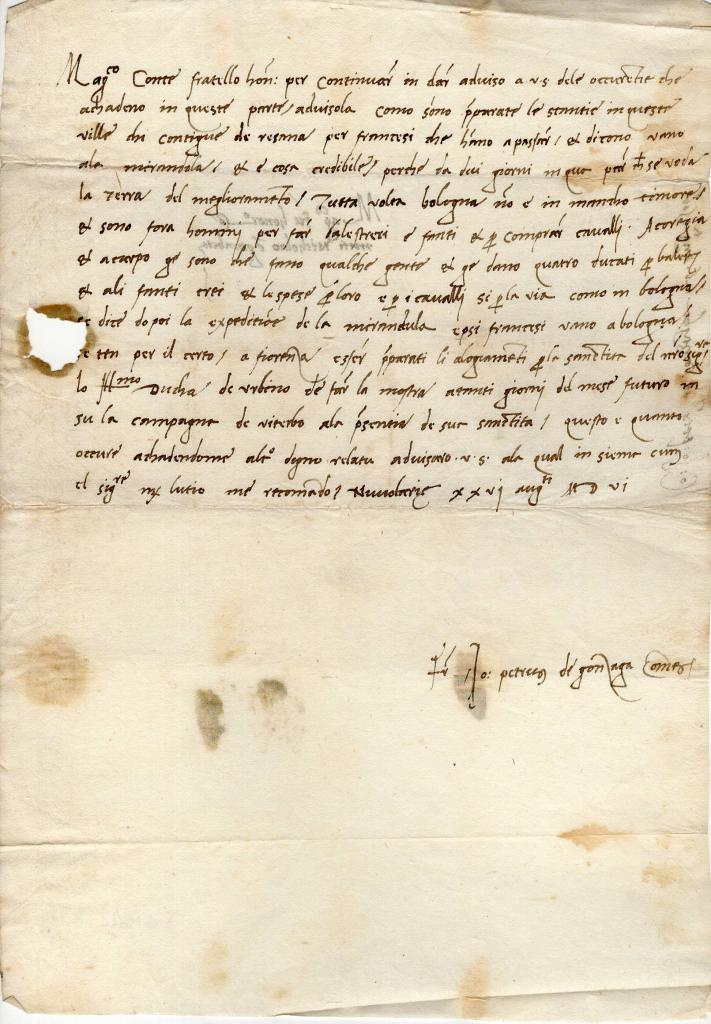 Mag.co Conte fratello hon: per continuar in dar adviso a v.s. dele occurentie che
achadeno in queste parte/ advisola como sono p̄parate le stantie in queste
ville chi contigue de resana per francesi che hāno a passar/ & dicono vano
ala mirandola/ & e cosa credibile/ perche da dui giorni in qua par
la Terra del meglioramēto/ Tutta volta bologna nō e in mancho timore/
& sono fora homini per far balestreri e fanti & p̄ comprar cavalli. A coregia
& a carpo ge sono che fano qualche gente & ge dano quatro ducati p̄ balestr
& ali fanti trei & le spese p̄ loro e p̄ i cavalli si p̄ la via como in bologna/
se dice dopoi la expeditiōe de la mirandula epsi francesi vano a bologna/
se ten per il certo/ a fiorenza esser p̄parati li alogiamēti p̄ la sanctita del nro sig.re
lo Ill.mo Ducha de urbino de far la mostra a tanti giorni del mese futuro in
su la campagna de viterbo ala p̄sentia de sua sanctita/ questo e quanto
occure achadendome alt.o digno relatu advisaro .v.s. ala qual in sieme cum
el sig.re mx lutio me recomādo/ Nuvolarie xxvi aug.ti M D vi
Fr Jo: petrus de gonzaga Comes/